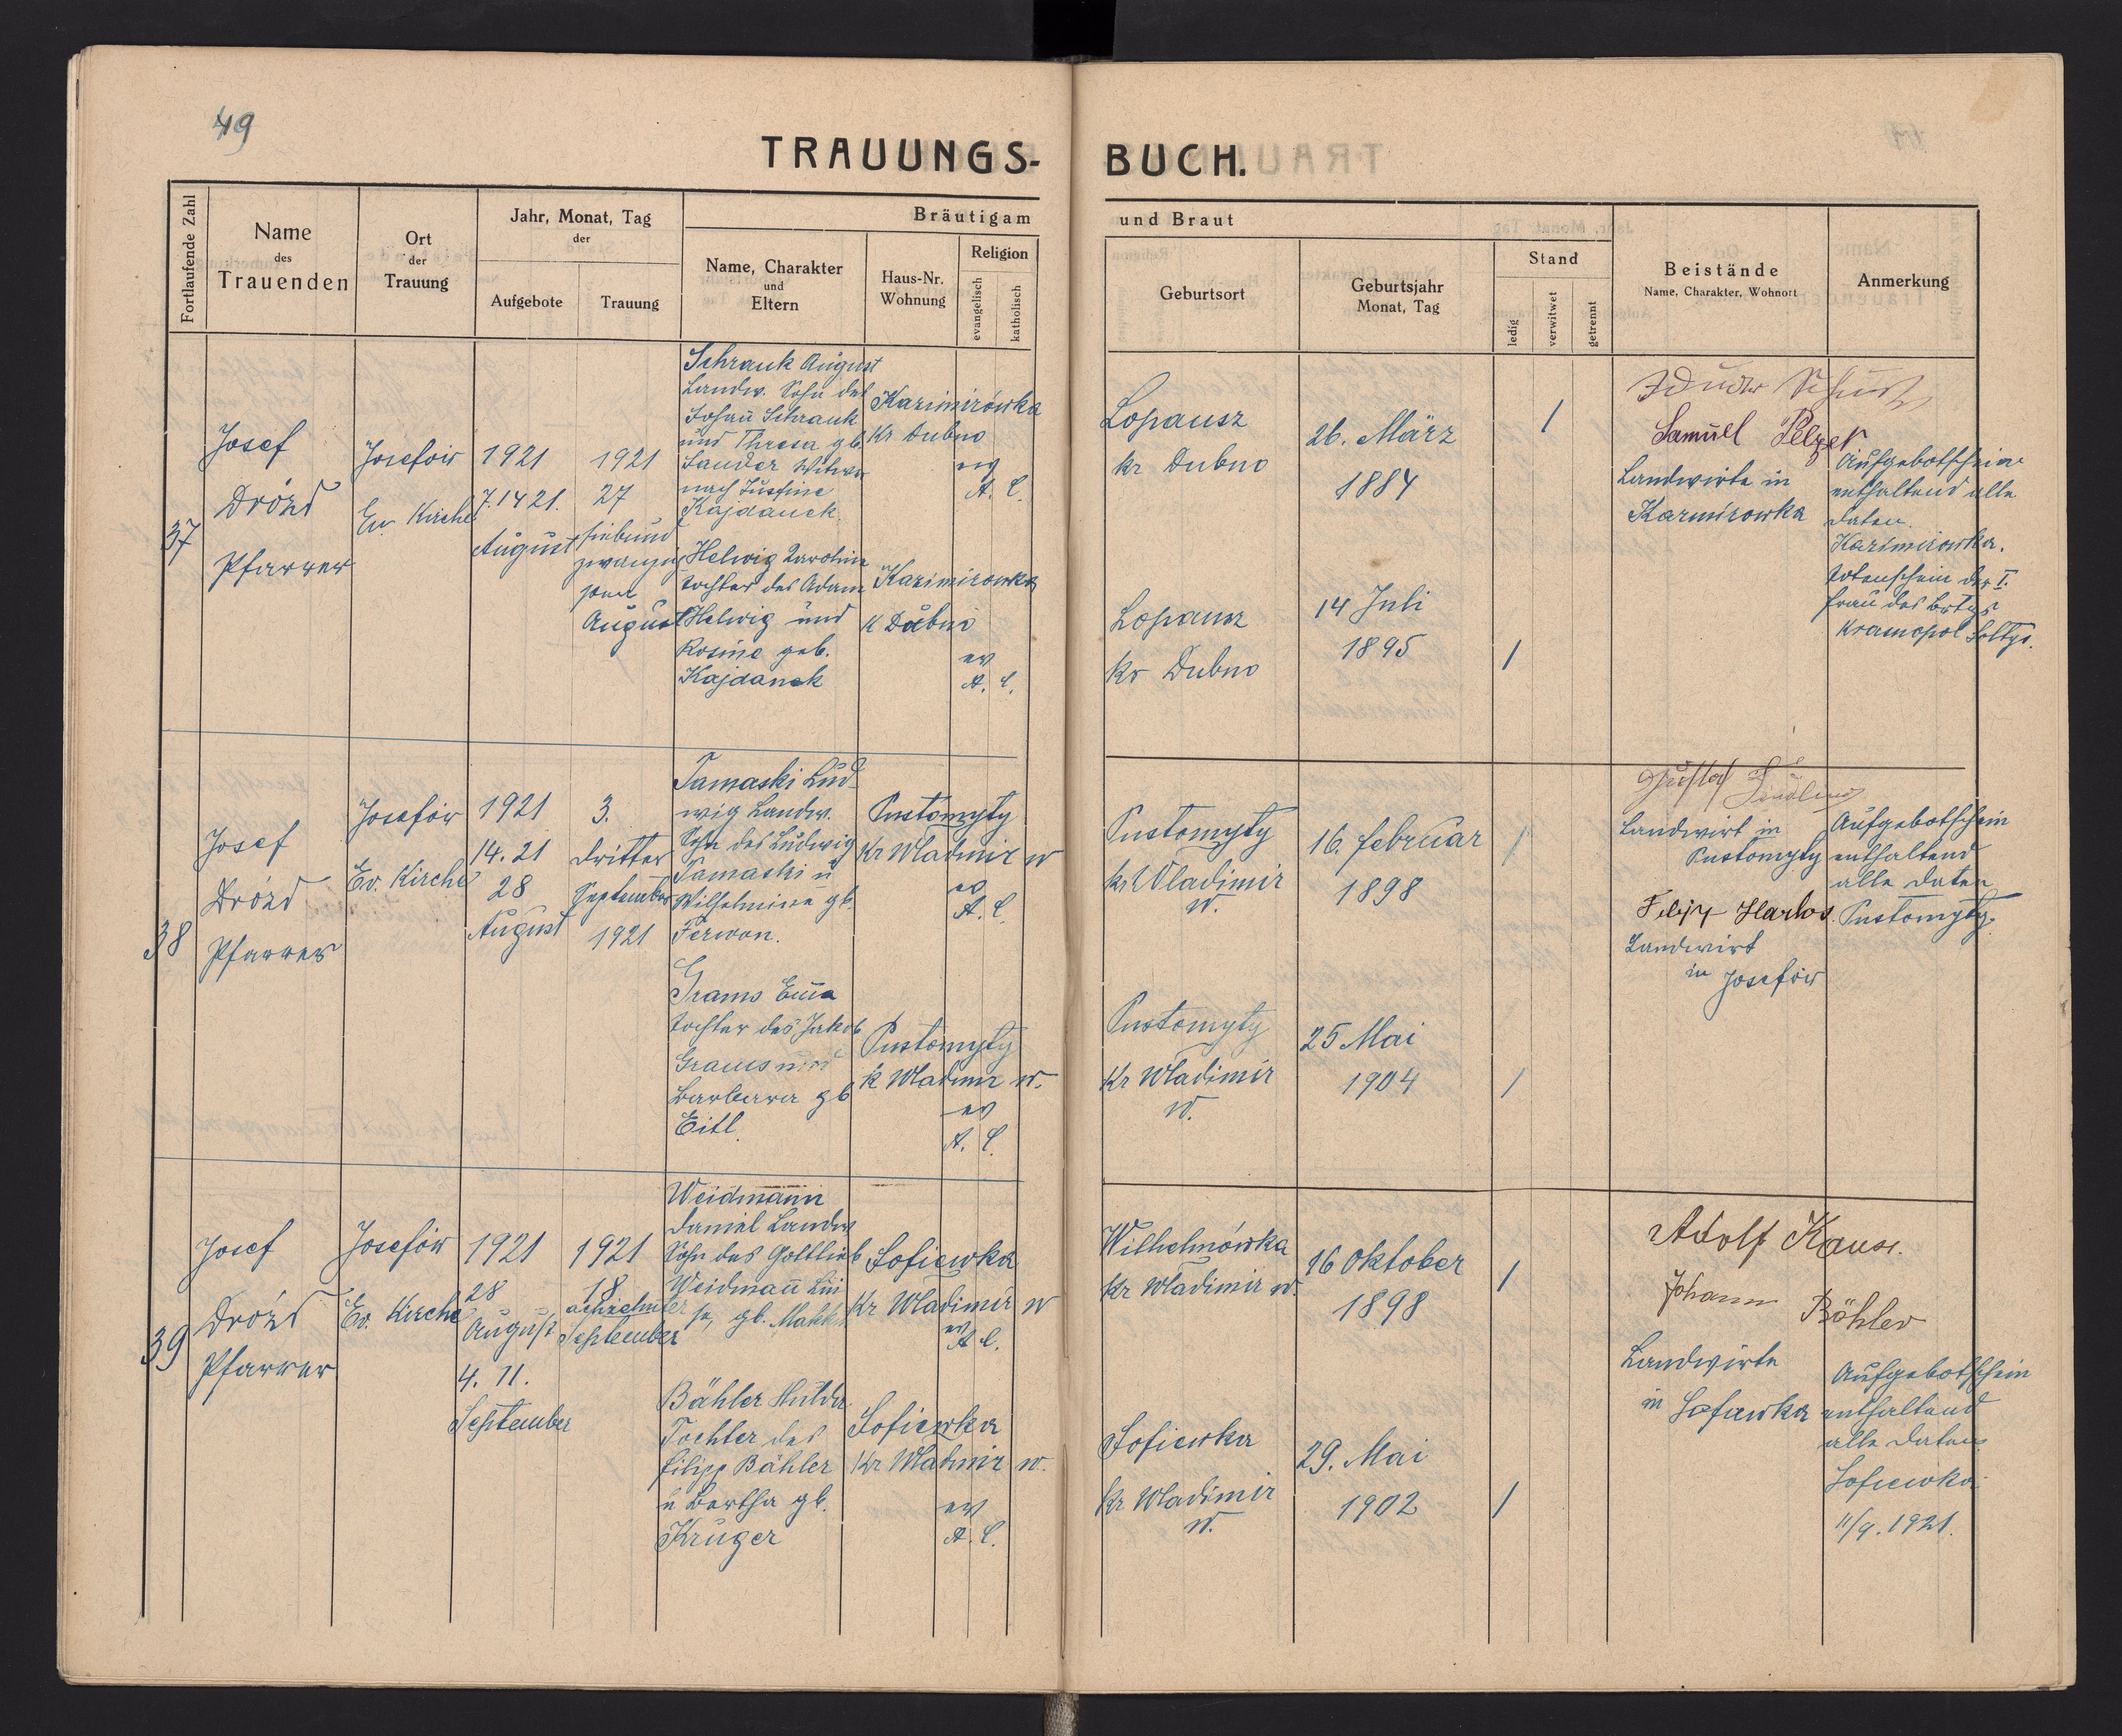 49
TRAUUNGS-
BUCH.
Fortlaufende Zahl
Name
des
Trauenden
Ort
der
Trauung
Jahr, Monat, Tag
der
Aufgebote
Trauung
Bräutigam
Name, Charakter
und
Eltern
Haus-Nr.
Wohnung
Religion
evangelisch
katholisch
und Braut
Geburtsort
Geburtsjahr
Monat, Tag
Stand
ledig
verwitwet
getrennt
Beistände
Name, Charakter, Wohnort
Anmerkung
37
Josef
Drózd
Pfarrer
Josefów
Ev. Kirche
1921
7. 14 21.
August
1921
27
siebenund
zwanzig
August
Schrauk August
Landw. Sohn des
Johan̄ Schrauk
und Thresa gb.
Sauder Witwer
nach Justine
Kajdanek.
Kazimirówka
Kr Dubno
ev
A. C.
Lopausz
kr Dubno
26. März
1884
/
Samuel Pelzer
Landwirte in
Kazmirowka
Aufgebotschein
enthaltend alle
Daten.
Kazimirowka.
Totenschein der I.
Frau des
Krasnopol Soltys.
Helwig Karoline
Tochter des Adam
Helwig und
Rosine geb.
Kajdanek
Kazimirowka
K Dubno
ev
A. C.
Lopausz
kr Dubno
14 Juli
1895
/
38
Josef
Drózd
Pfarrer
Josefów
Ev. Kirche
1921
14. 21
28
August
3.
dritter
September
1921
Tamaski Lud-
wig Landw.
Sohn des Ludwig
Tamaski u
Wilhelmine gb.
Ferwon.
Pustomyty
Kr Wladimir w
ev
A. C.
Pustomyty
kr Wladimir
w.
16. februar
1898
/
Gustaf
Landwirt in
Pustomyty
Filipp Harlos
Landwirt
in Josefów
Aufgebotschein
enthaltend
alle Daten
Pustomyty.
Grams Em̄a
Tochter des Jakob
Grams und
Barbara gb
Eitl.
Pustomyty
K Wladimir w.
ev
A. C.
Pustomyty
Kr Wladimir
w.
25 Mai
1904
/
39
Josef
Drózd
Pfarrer
Josefów
Ev. Kirche
1921
28
August
4. 11.
September
1921
18
achzehnter
September
Weidmann
Daniel Landw
Sohn des Gottlieb
Weidman̄
gb.
Sofiewka
Kr Wladimir w
ev
A. C.
Wilhelmówka
Kr Wladimir w.
16 Oktober
1898
/
Adolf
Johann Böhler
Landwirte
in Sofiewka
Aufgebotschein
enthaltend
alle Daten
Sofiewka
11/9. 1921.
Bähler Hulda
Tochter des
filipp Bähler
u Bertha gb.
Krüger
Sofiewka
Kr Wladimir w.
ev
A. C.
Sofiewka
Kr Wladimir
w.
29. Mai
1902
/